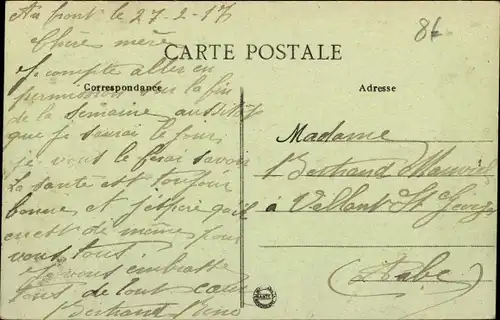 Au front le 27-2-17
86
Chère mère
CARTE POSTALE
Je compte aller en
Correspondance
Adresse
permission sur la fin
de la semaine aussitot
que je saurai le jour
je vous le ferai savoir
La santé est toujour
bonne et j'espère qu'il
en est de même pour
vous tous
Je vous embrasse
tous de tout cœur
Bertrand René
Madame
Bertrand
à Villant St Georges
(Aube)
CARTE